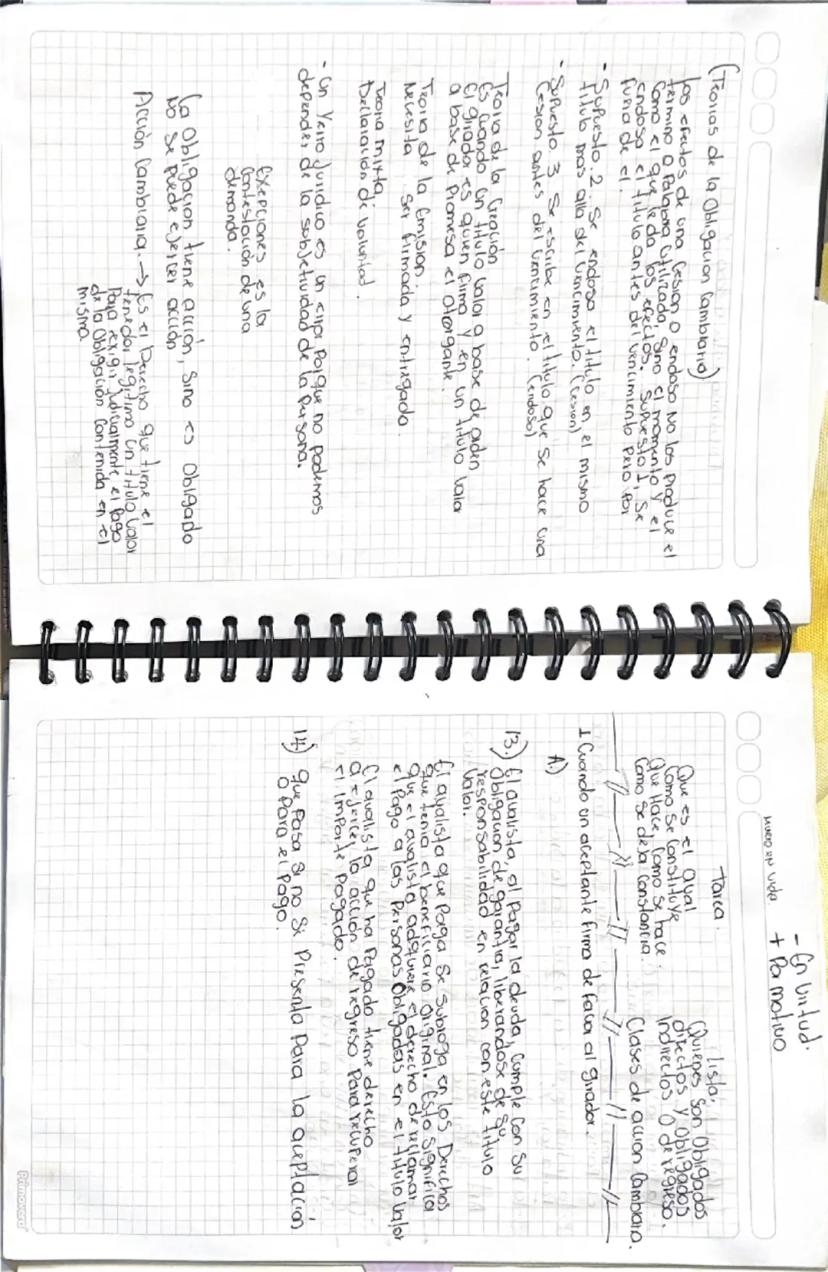 (Teorias de la Obligacion Cambiario)
los efectos de una Cesion o endoso No los Produce el
termino o Palabra utilizada, Sino el momento y el
Como el que le da los efectos. Supuesto 1, Se
endosa el titulo antes del vencimiento Pero por
fuera de el.
- Supuesto. 2. Se endosa el titulo en el mismo
titulo mas alla del Vencimiento. (Cesion)
- Supuesto 3 Se escribe en el titulo que se hace una
Cesion antes del Vencimiento. (endoso)
Teoria de la Creación
Es cuando un titulo valor a base de orden
El girador es quien firma y en un titulo valor
a base de Promesa el otorgante.
Teoria de la Emision
Necesita Ser Firmada y entregada.
Teoria mixta:
Declaración de Voluntad.
- Un Yerro Juridico es un error Porque no podemos
depender de la subjetividad de la Persona.
Exepciones es la
Contestación de una
demanda.
La Obligacion tiene acción, Sino es Obligado
No Se puede ejercer acción
Acción Cambiaria. → Es el Derecho que tiene el
tenedor legitimo un titulo valor
Para exigir Judicialmente el Pago
de la Obligación Contenida en el
misma.
- En Virtud.
+ Por motivo
muero en vida
Tarea.
Que es el aval
Como se Constituye
Que Hace, Como se hace.
Como se deja Constancia.
lista:
Quienes Son Obligados
directos y Obligados
Indirectos o de regreso.
Clases de accion Cambiaria.
1 Cuando un aceptante firma de favor al girador.
A.)
13.) El avalista, al pagar la deuda, Cumple Con su
Obligacion de garantia, liberandose de su
responsabilidad en relacion con este titulo
Valor.
El avalista que Paga Se Subroga en los Derechos
que tenia el beneficiario Original. Esto Significa
que el avalista adquiere el derecho de reclamar
el Pago a las Personas Obligadas en el titulo Valor
El avalista que ha Pagado tiene derecho
a ejercer la acción de regreso Para recuperar
el importe Pagado.
14) que Pasa si no se Presenta Para la aceptación
o Para el Pago.
Primavera